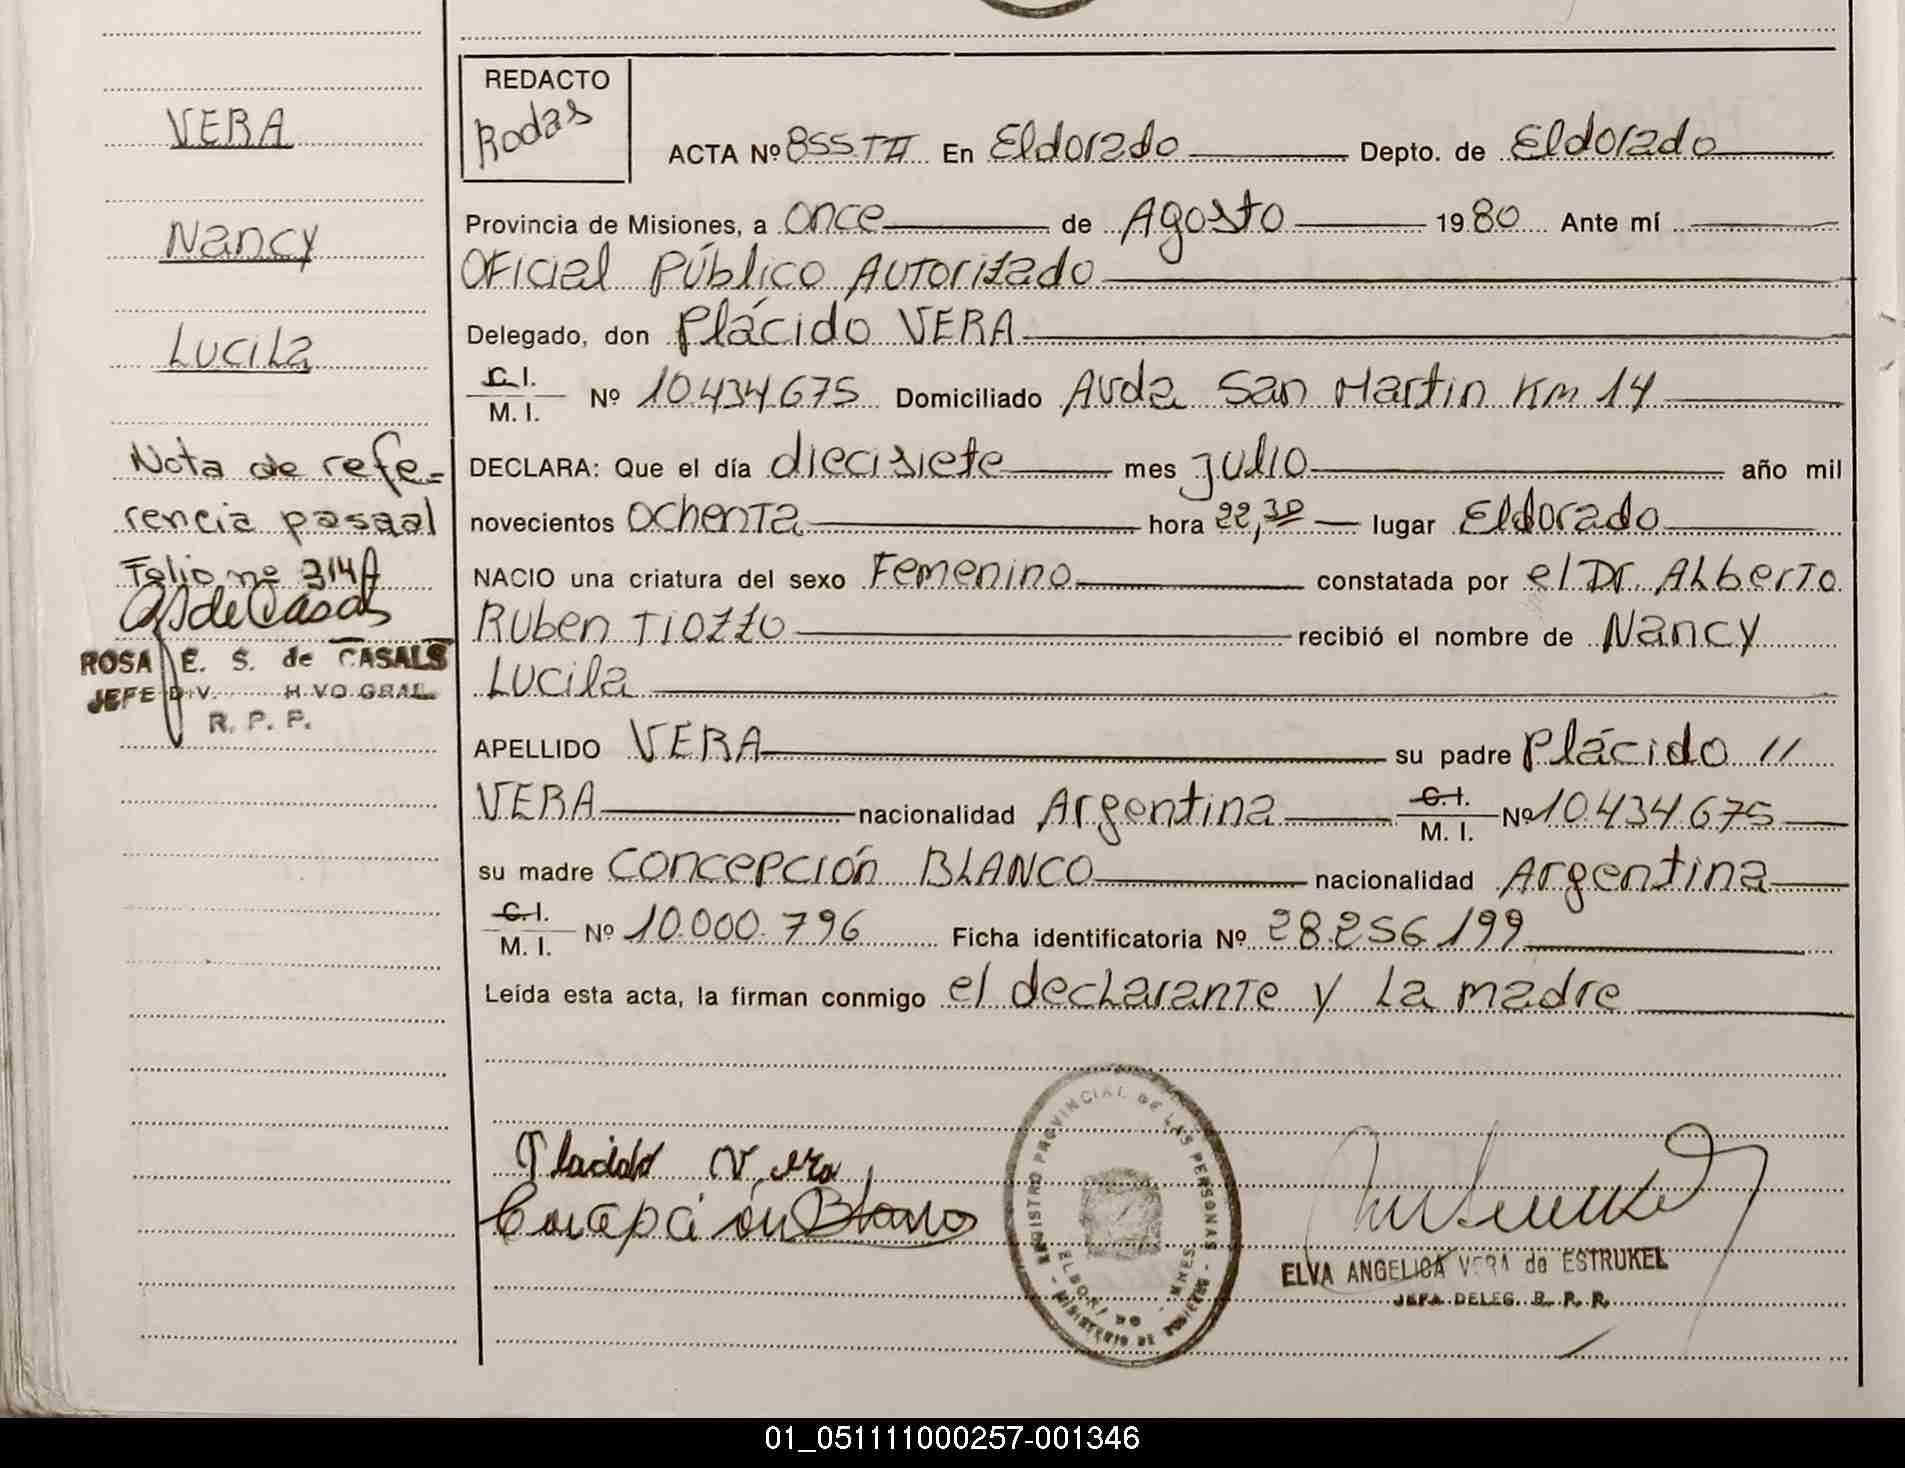 VERA
Nancy
Lucila
Nota de refe=
rencia pasaal
Folio nº 314A
ROSA E. S. de CASALS
JEFE DIV. H VO GRAL.
R. P. P.
REDACTO
Rodas
ACTA Nº 855 TII En Eldorado Depto. de Eldorado
Provincia de Misiones, a once de Agosto 1980 Ante mí
Oficial Público Autorizado
Delegado, don Plácido VERA
C.I.
M. I. Nº 10.434.675 Domiciliado Avda San Martin Km 14
DECLARA: Que el día diecisiete mes julio año mil
novecientos ochenta hora 22,30 lugar Eldorado
NACIO una criatura del sexo Femenino constatada por el Dr. Alberto
Ruben Tiozzo recibió el nombre de Nancy
Lucila
APELLIDO VERA su padre Plácido //
VERA nacionalidad Argentina C.I.
M. I. Nº 10.434.675
su madre Concepción BLANCO nacionalidad Argentina
C.I.
M. I. Nº 10.000.796 Ficha identificatoria Nº 28.256.199
Leída esta acta, la firman conmigo el declarante y la madre
Placido Vera
Concepción Blanco
REGISTRO PROVINCIAL DE LAS PERSONAS
ELDORADO - MNES.
MINISTERIO DE GOBIERNO
ELVA ANGELICA VERA de ESTRUKEL
JEFA DELEG. R. P. P.
01_051111000257-001346